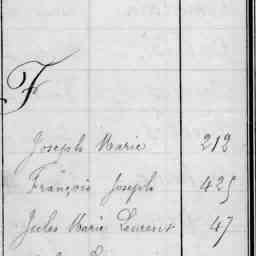 F
Joseph Marie 212
François Joseph 425
Jules Marie Laurent 47